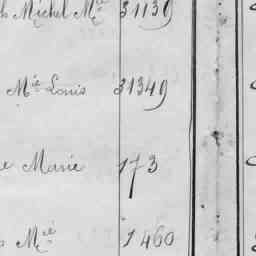 Michel Mⁱᵉ 31139
Mⁱᵉ Louis 31349
Marie 173
Mⁱᵉ 1460